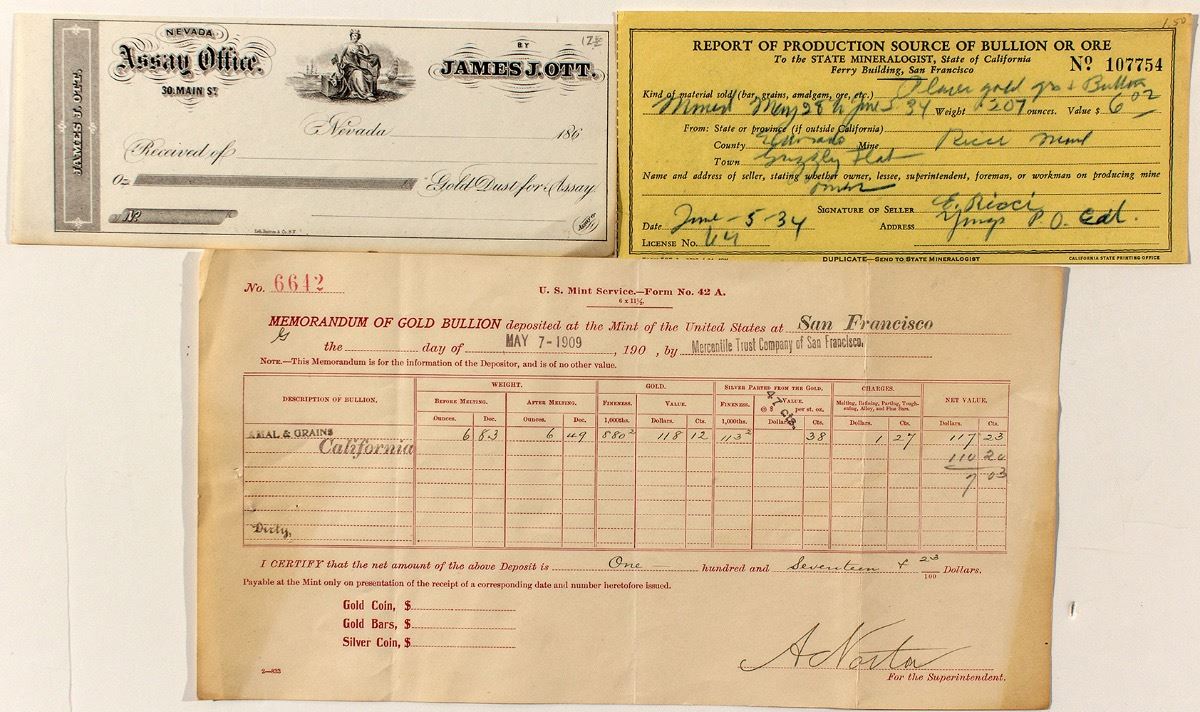 NEVADA
Assay Office.
30. MAIN ST.
JAMES J. OTT.
BY
JAMES J. OTT.
Nevada 186
Received of
Oz Gold Dust for Assay.
No.
1.50
REPORT OF PRODUCTION SOURCE OF BULLION OR ORE
To the STATE MINERALOGIST, State of California
Ferry Building, San Francisco
No 107754
Kind of material sold (bar, grains, amalgam, ore, etc.) Placer gold grs & Bullion
Mined May 28 to June 5 34 Weight .207 ounces. Value $ 6 02
From: State or province (if outside California)
County Eldorado Mine Ricci
Town Grizzly Flat
Name and address of seller, stating whether owner, lessee, superintendent, foreman, or workman on producing mine
owner
SIGNATURE OF SELLER E. Ricci
Date June - 5 - 34 ADDRESS P.O. Cal.
LICENSE No. 64
DUPLICATE—SEND TO STATE MINERALOGIST CALIFORNIA STATE PRINTING OFFICE
No. 6642
U. S. Mint Service.—Form No. 42 A.
6 x 11½.
MEMORANDUM OF GOLD BULLION deposited at the Mint of the United States at San Francisco
the day of MAY 7-1909, 190 , by Mercantile Trust Company of San Francisco.
NOTE.—This Memorandum is for the information of the Depositor, and is of no other value.
DESCRIPTION OF BULLION. WEIGHT. GOLD. SILVER PARTED FROM THE GOLD. CHARGES. NET VALUE.
BEFORE MELTING. AFTER MELTING. FINENESS. VALUE. FINENESS. VALUE. @ $ per st. oz. Melting, Refining, Parting, Toughening, Alloy, and Fine Bars.
47 cts.
Ounces. Dec. Ounces. Dec. 1,000ths. Dollars. Cts. 1,000ths. Dollars. Cts. Dollars. Cts. Dollars. Cts.
AMAL & GRAINS 6 83 6 49 880² 118 12 113² 38 1 27 117 23
California 110 20
7 03
Dirty,
I CERTIFY that the net amount of the above Deposit is One hundred and Seventeen & 23/100 Dollars.
Payable at the Mint only on presentation of the receipt of a corresponding date and number heretofore issued.
Gold Coin, $
Gold Bars, $
Silver Coin, $
2—833
For the Superintendent.